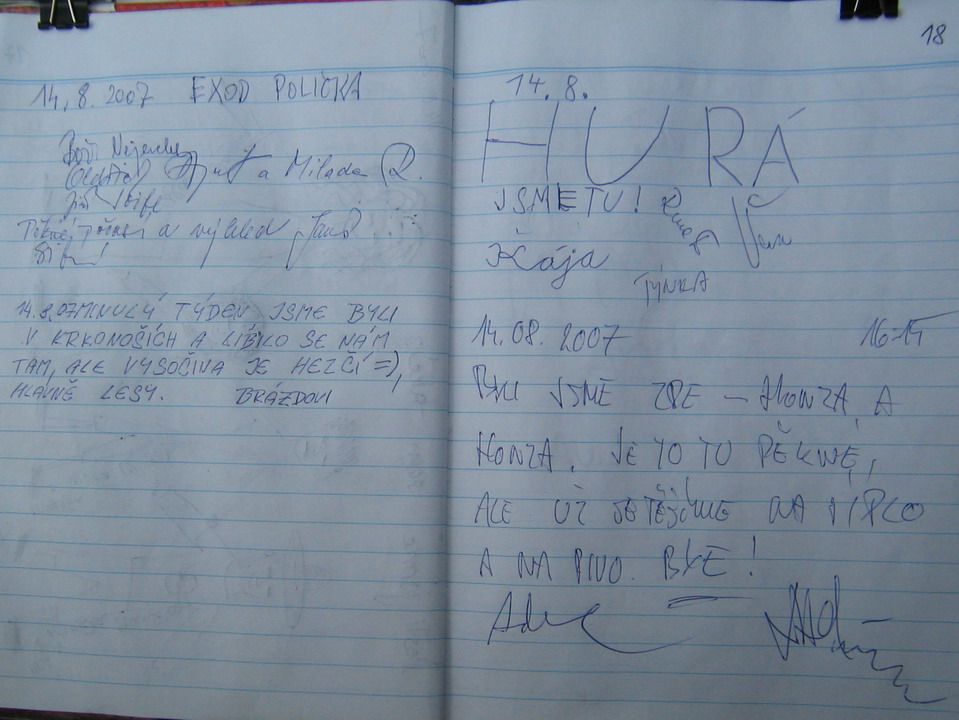 14.8.2007 EXOD POLIČKA
Oldřich a Milada R.
Jiří
a výhled
14.8.07 MINULÝ TÝDEN JSME BYLI
V KRKONOŠÍCH A LÍBILO SE NÁM
TAM, ALE VYSOČINA JE HEZČÍ =),
HLAVNĚ LESY. BRÁZDOVI
18
14.8.
HURÁ
JSME TU!
Kája
TÝNKA
14.08.2007 16:15
BYLI JSME ZDE – HONZA A
HONZA. JE TO TU PĚKNÉ,
ALE UŽ SE TĚŠÍME NA JÍDLO
A NA PIVO. BYE!